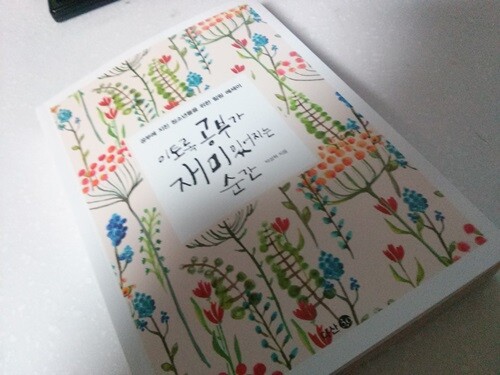 공부에 지친 청소년들을 위한 힐링 에세이
이토록 공부가
재미있어지는
순간
박성혁 지음
다산